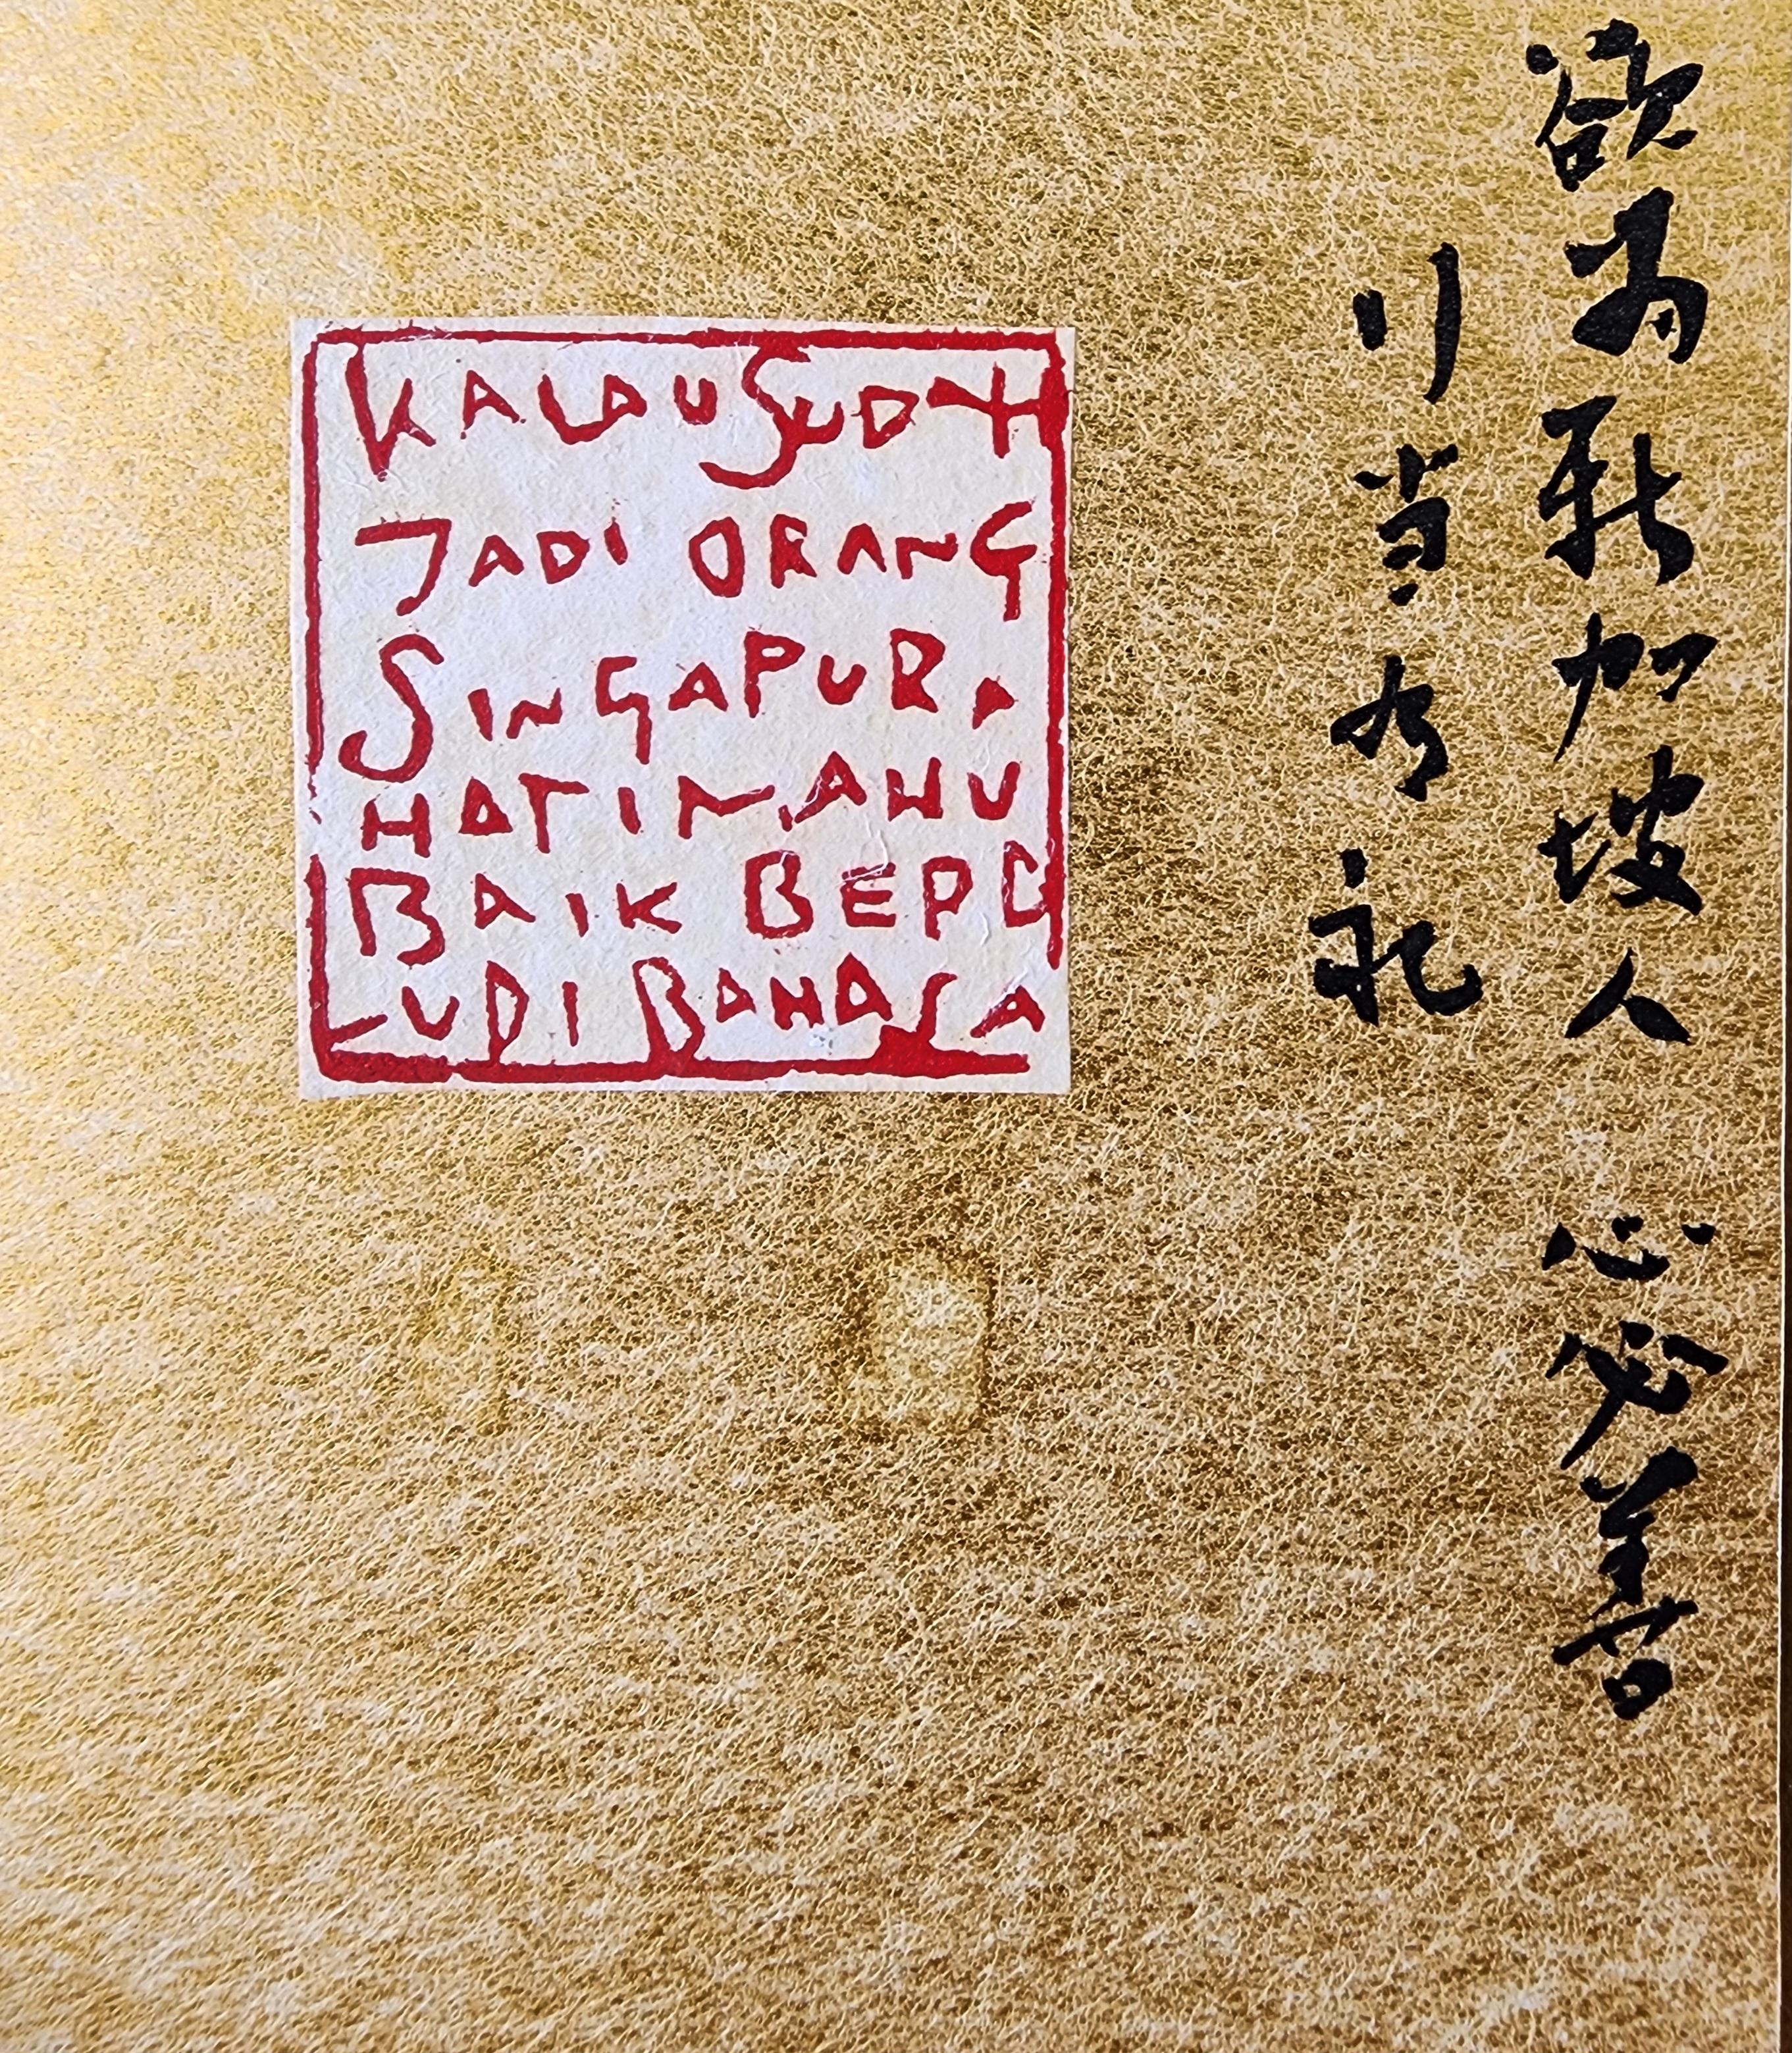 欲为新加坡人 心必善
行当有礼
KALAU SUDAH
JADI ORANG
SINGAPURA
HATI MAHU
BAIK BERB
UDI BAHASA